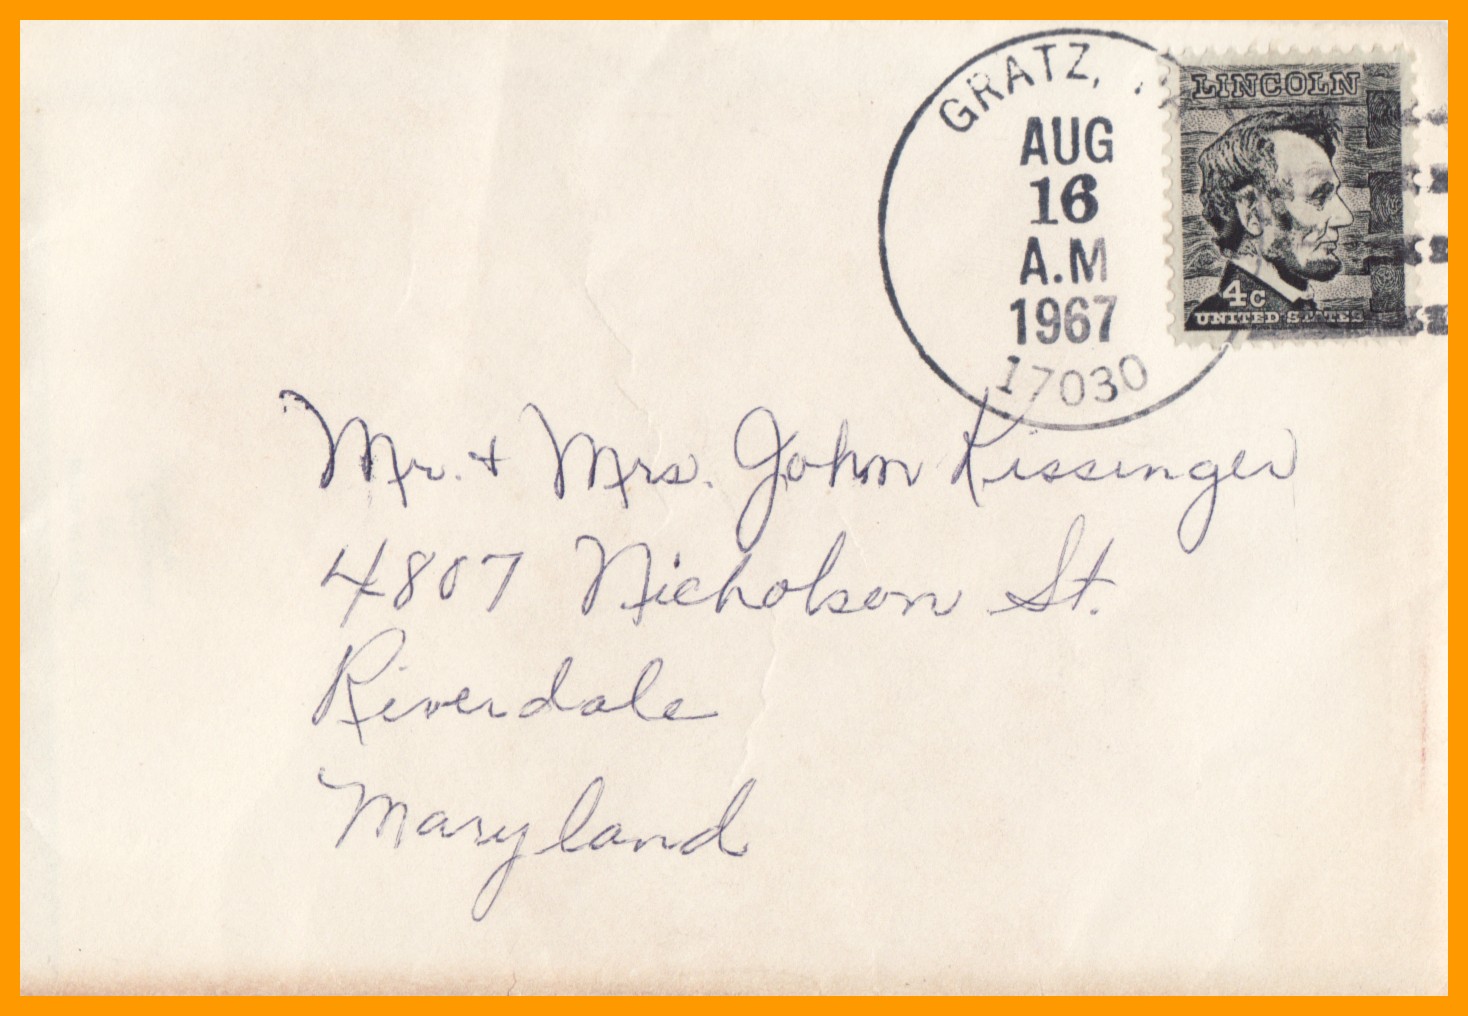 GRATZ,
AUG
16
A.M
1967
17030
LINCOLN
4c
UNITED STATES
Mr. + Mrs. John Kissinger
4807 Nicholson St.
Riverdale
Maryland